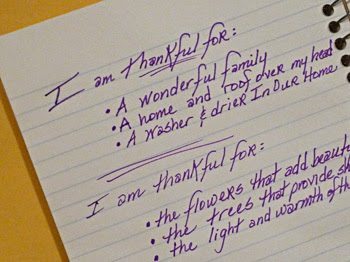 I am thankful for:
• A wonderful family
• A home and roof over my head
• A washer & drier In Our Home
I am thankful for:
• the flowers that add beaut
• the trees that provide sh
• the light and warmth of th